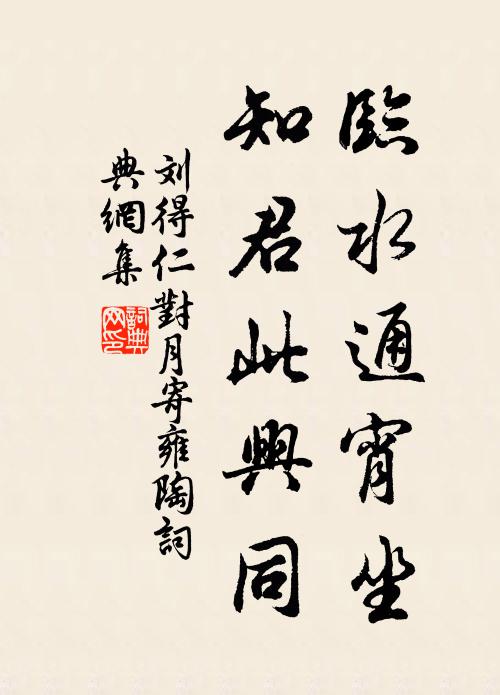 臨水通宵坐
知君此興同
刘得仁對月寄雍陶詞
典網集
詞典
网印